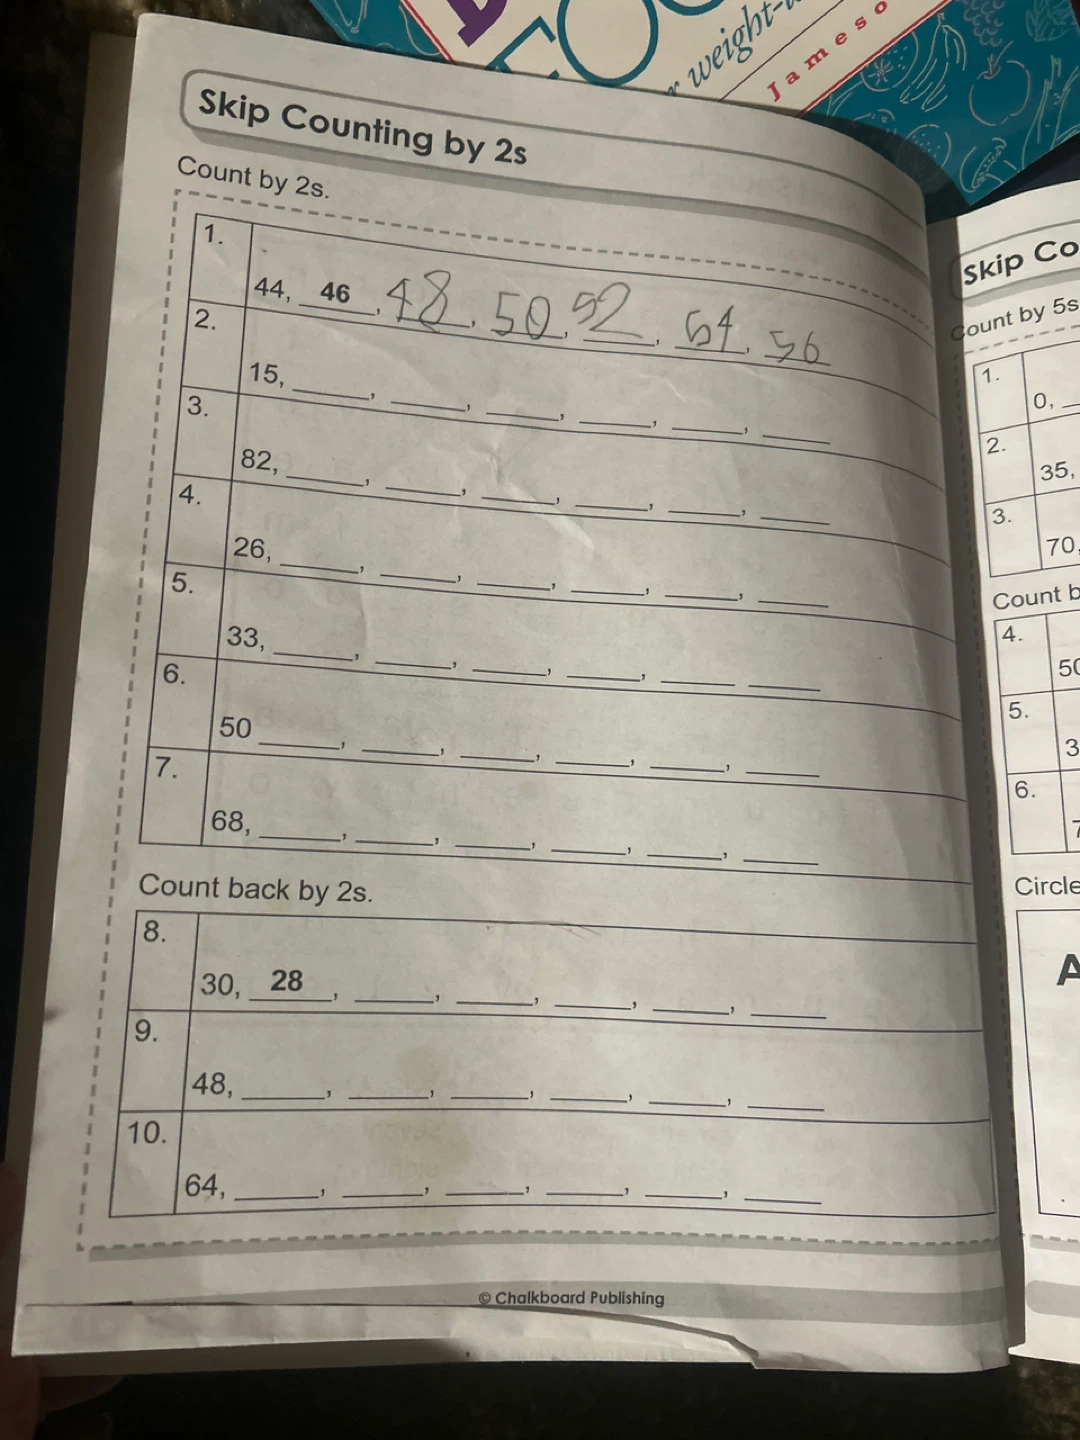 r weight-
Jameso
Skip Counting by 2s
Count by 2s.
1.
44, 46, 48, 50, 52, 54, 56
2.
15, ____, ____, ____, ____, ____, ____
3.
82, ____, ____, ____, ____, ____, ____
4.
26, ____, ____, ____, ____, ____, ____
5.
33, ____, ____, ____, ____, ____ ____
6.
50 ____, ____, ____, ____, ____, ____
7.
68, ____, ____, ____, ____, ____, ____
Count back by 2s.
8.
30, 28, ____, ____, ____, ____, ____
9.
48, ____, ____, ____, ____, ____, ____
10.
64, ____, ____, ____, ____, ____, ____
© Chalkboard Publishing
Skip Co
Count by 5s
1.
0,
2.
35,
3.
70,
Count b
4.
50
5.
3
6.
7
Circle
A